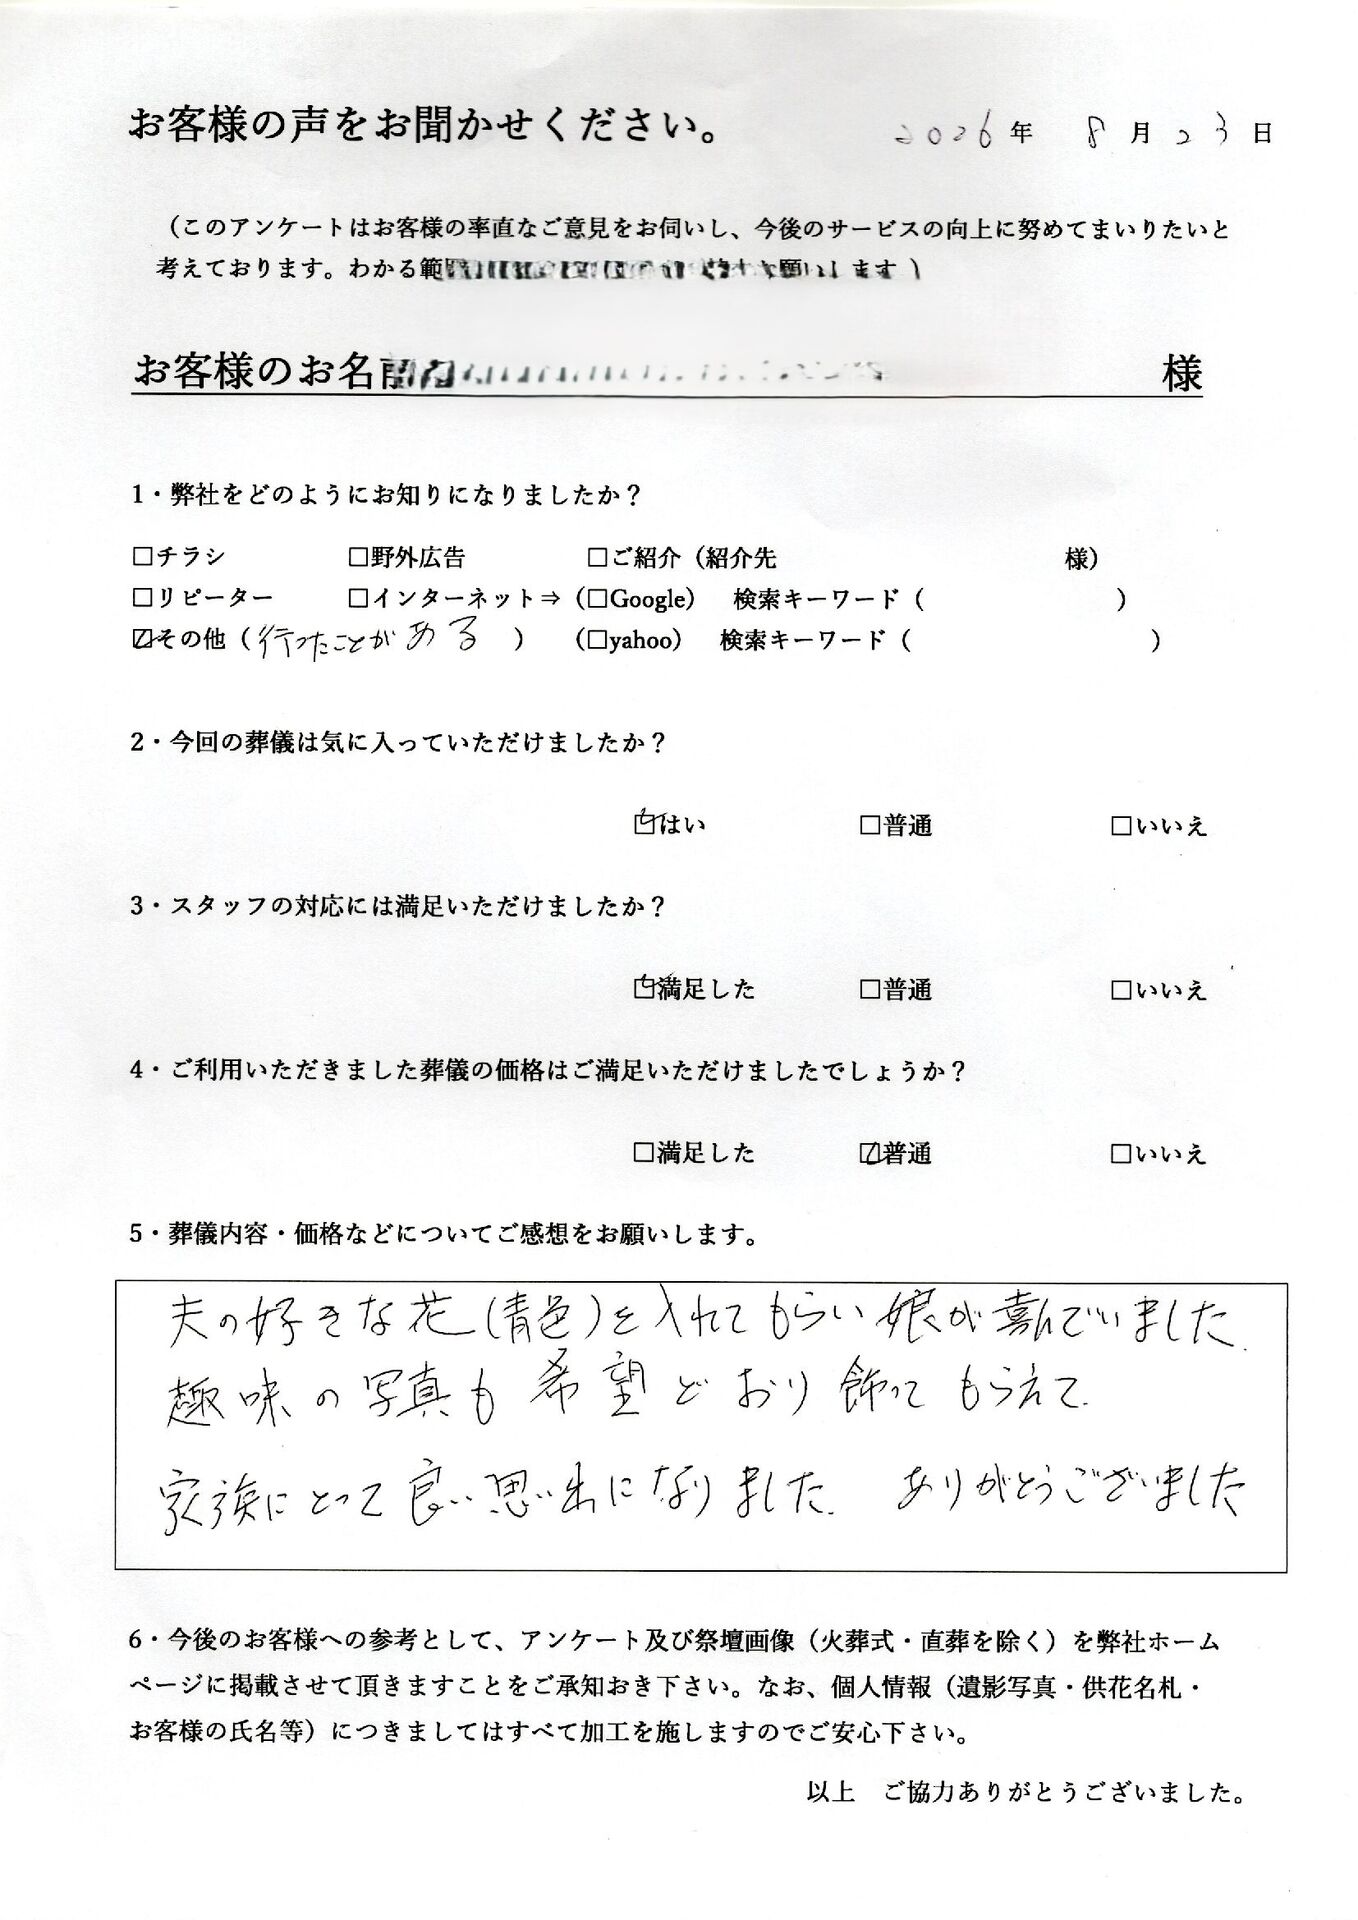 お客様の声をお聞かせください。 2026年 8月23日
（このアンケートはお客様の率直なご意見をお伺いし、今後のサービスの向上に努めてまいりたいと
考えております。わかる範 願いします）
お客様のお名前 様
1・弊社をどのようにお知りになりましたか？
□チラシ □野外広告 □ご紹介（紹介先 様）
□リピーター □インターネット⇒（□Google） 検索キーワード（ ）
☑その他（行ったことがある ） （□yahoo） 検索キーワード（ ）
2・今回の葬儀は気に入っていただけましたか？
☑はい □普通 □いいえ
3・スタッフの対応には満足いただけましたか？
☑満足した □普通 □いいえ
4・ご利用いただきました葬儀の価格はご満足いただけましたでしょうか？
□満足した ☑普通 □いいえ
5・葬儀内容・価格などについてご感想をお願いします。
夫の好きな花(青色)を入れてもらい娘が喜んでいました.
趣味の写真も希望どおり飾ってもらえて.
家族にとって良い思い出になりました. ありがとうございました
6・今後のお客様への参考として、アンケート及び祭壇画像（火葬式・直葬を除く）を弊社ホーム
ページに掲載させて頂きますことをご承知おき下さい。なお、個人情報（遺影写真・供花名札・
お客様の氏名等）につきましてはすべて加工を施しますのでご安心下さい。
以上 ご協力ありがとうございました。